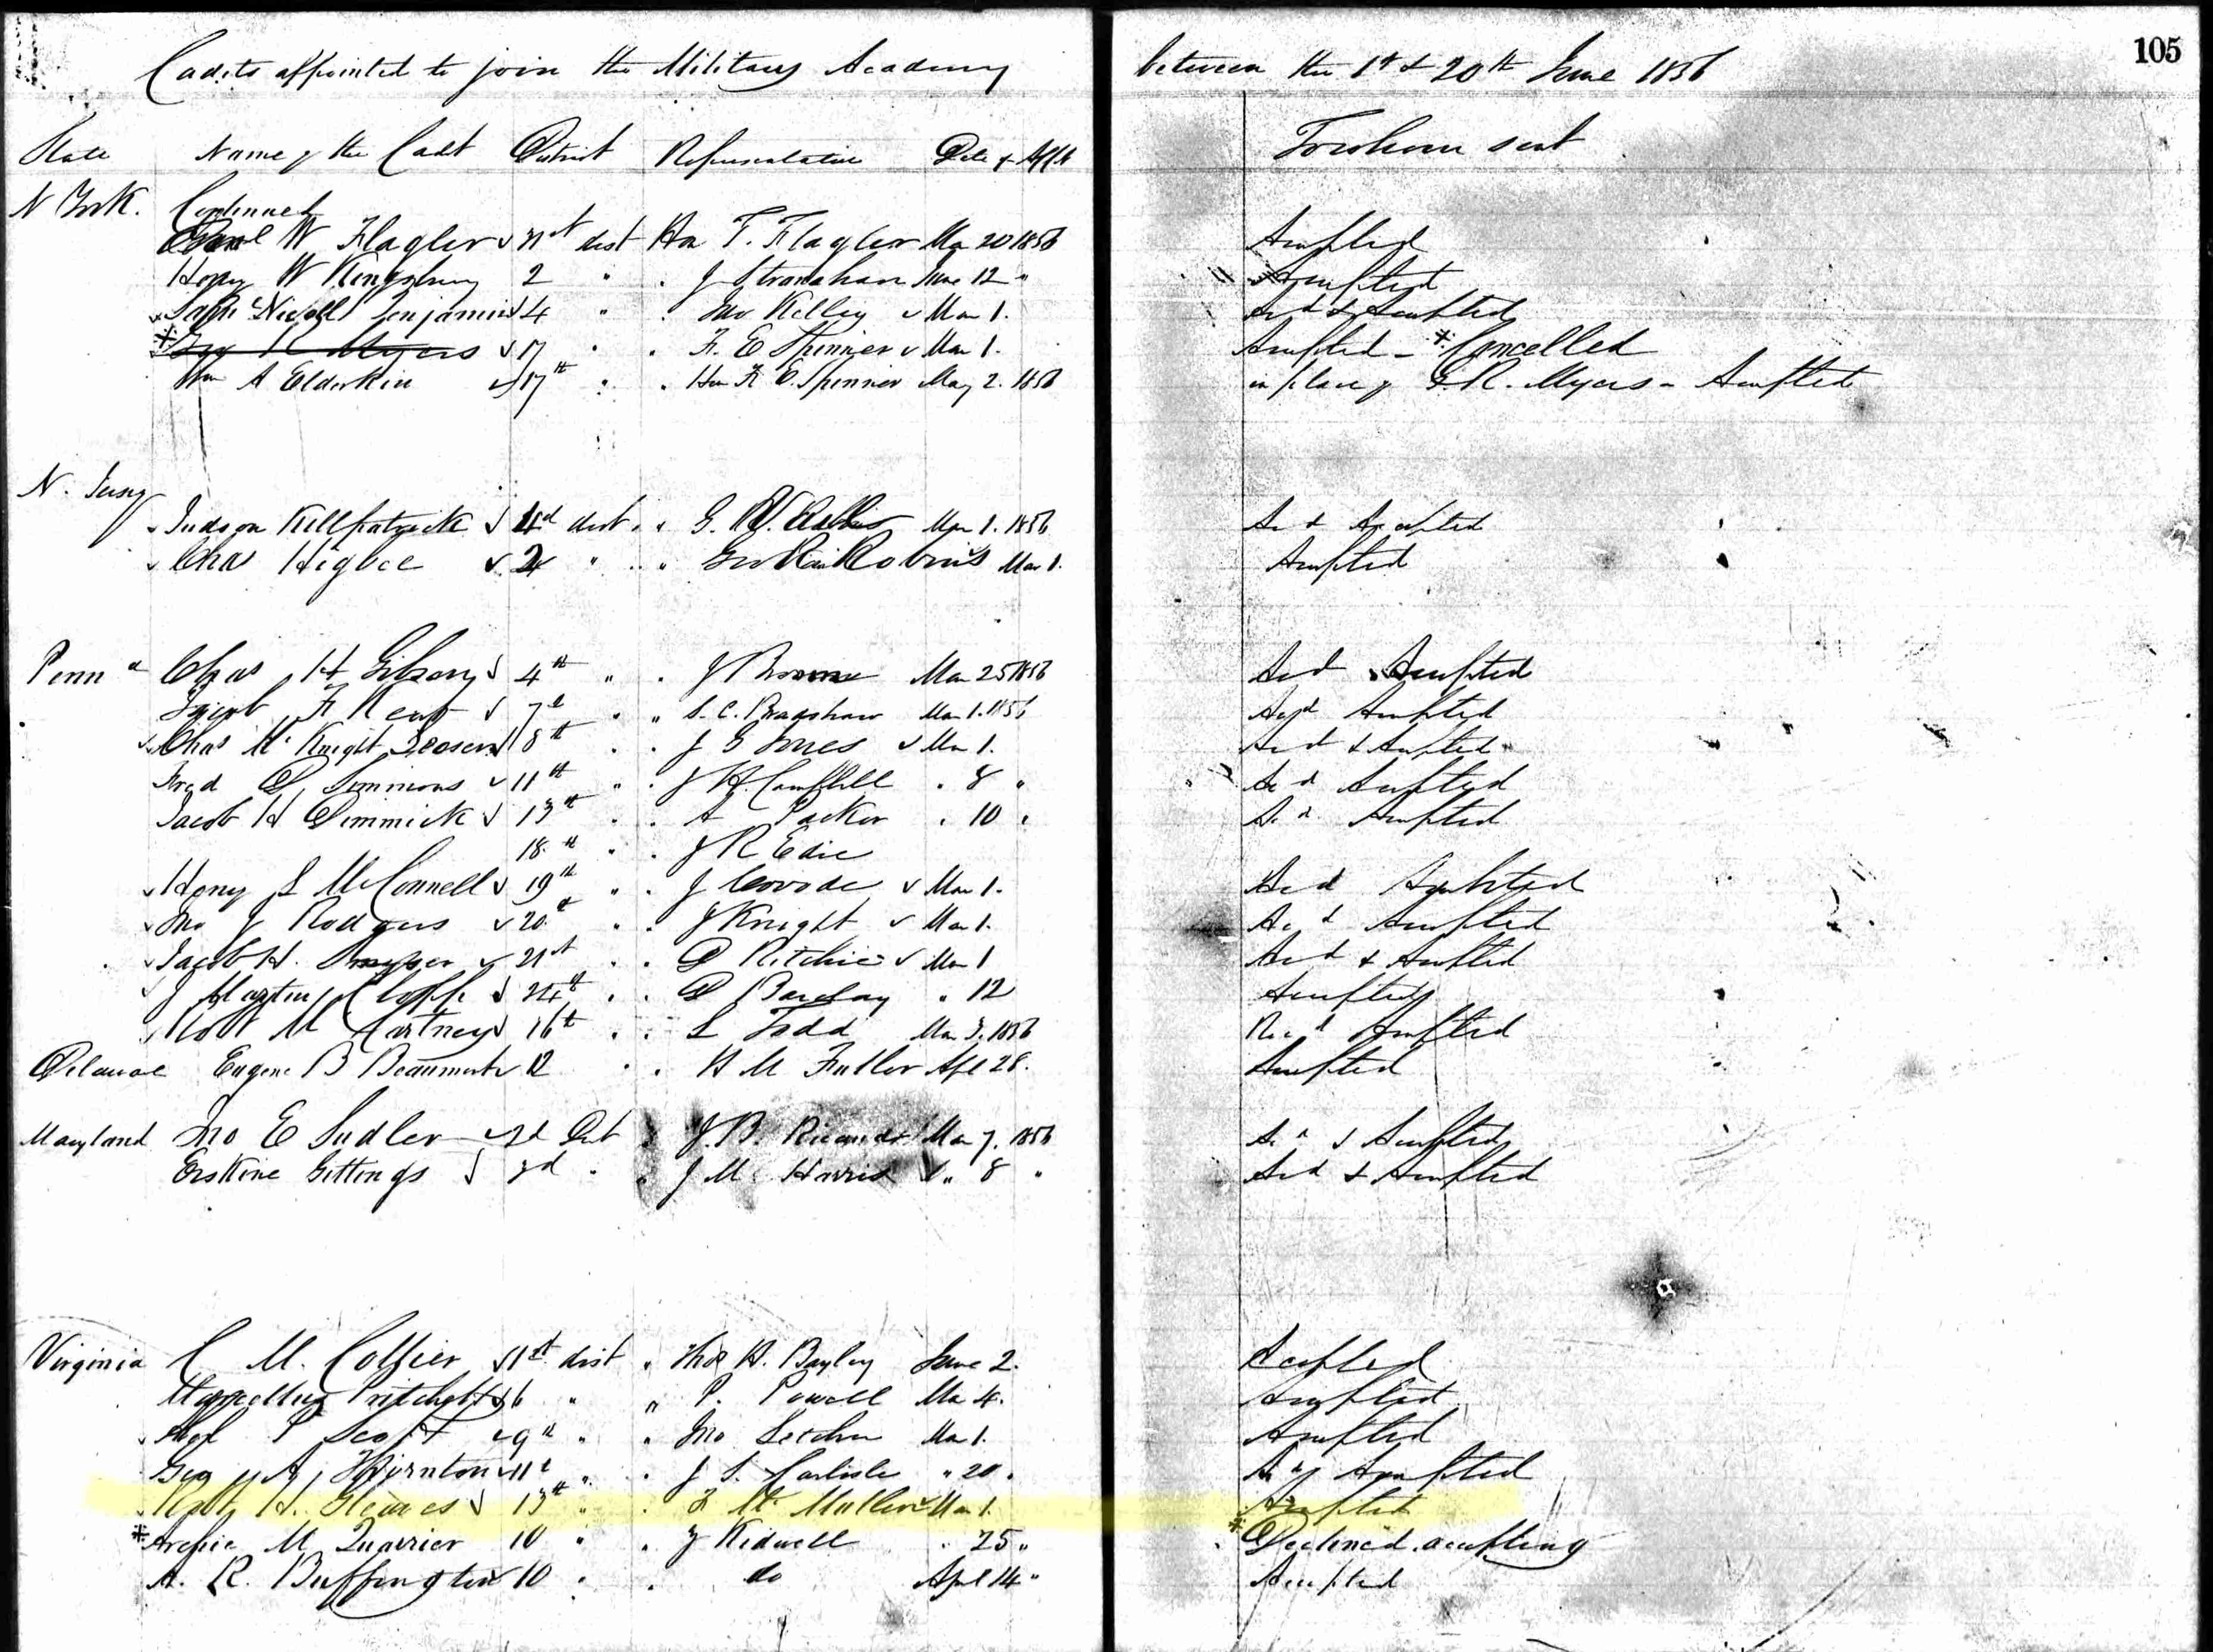 Cadets appointed to join the Military Academy between the 1st & 20th June 1856
105
State Name of the Cadt District Representative Date of Appt
To whom sent
N York. Continued
W Flagler 31st dist Hon T. Flagler Mar 20 1856 Accepted
W Kingsbury 2 " . J Stranahan June 12 " Accepted
Nicoll Benjamin 4 " . Jno Kelley Mar 1. & Accepted
* Geo R Myers 17 " . F. E Spinner Mar 1. Accepted - * Cancelled
Wm A Elderkin 17th " . Hon F. E. Spinner May 2. 1856 in place of G. R. Myers - Accepted
N. Jersey
Judson Killpatrick dist. " Mar 1. 1856 Accepted
Chas Higbee 2 " " Robins Mar 1. Accepted
Penna Chas H Gibson 4th " . J Broom Mar 25 1856 Accepted
Jacob F Kent 7th " " S. C. Bradshaw Mar 1. 1856 Accepted
Chas McKnight 8th . . J G Jones Mar 1. & Accepted
Fred Simmons 11th " . J H. Campbell . 8 " Accepted
Jacob H Dimmick 13th . . A Packer . 10 . Accepted
18th " . J R Edie
L McConnell 19th " . J Covode Mar 1. Accepted
Jno J Rodgers 20th . . J Knight Mar 1. Accepted
Jacob H. Smyser 21st . . D Ritchie Mar 1 & Accepted
J 24th . . D Barclay . 12 Accepted
Robt McCartney 16th . . L Todd Mar 3. 1856 Accepted
Delaware Eugene B Beaumont 12 . . H M Fuller Apl 28. Accepted
Maryland Jno E Sudler Dist J. B. Ricaud Mar 7. 1856 & Accepted
Erskine Gittings 3d . " J M Harris " 8 " & Accepted
Virginia C M. Collier 1st dist " Thos H. Bayley June 2. Accepted
Marcellus Pritchett 6 " " P. Powell Mar 4. Accepted
P Scott 9th " " Jno Letcher Mar 1. Accepted
Geo A. Thornton 11th " . J S. Carlisle " 20. Accepted
Robt H. Gleaves 13th " . F McMullen Mar 1. Accepted
* Archie M Quarrier 10 " . Z Kidwell . 25 " * Declined accepting
A. R. Buffington 10 . . do Apl 14 " Accepted